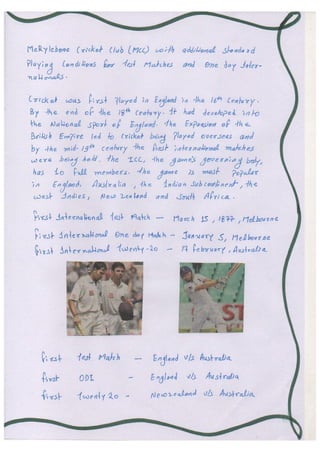 Merylebone Cricket Club (MCC) with additional standard
Playing Conditions for Test Matches and One day Inter-
nationals.
Cricket was first played in England in the 16th Century.
By the end of the 18th century. It had developed into
the National sport of England. The Expansion of the
British Empire led to cricket being played overseas and
by the mid-19th century the first international matches
were being held. The ICC, the game's governing body,
has 10 full members. The game is most popular
in England. Australia, the Indian Subcontinent, the
west Indies, New Zealand and South Africa.
First International Test Match - March 15, 1877, Melbourne
First International One day Match - January 5, Melbourne
First International Twenty-20 - 17 february, Australia
First Test Match - England v/s Australia
First ODI - England v/s Australia
First Twenty 20 - Newzealand v/s Australia